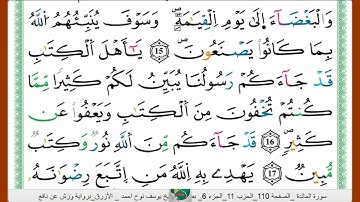 وَالْبَغْضَآءَ اِلَىٰ يَوْمِ اِ۬لْقِيَٰمَةِۖ وَسَوْفَ يُنَبِّئُهُمُ اُ۬للَّهُ
بِمَا كَانُواْ يَصْنَعُونَۖ 15 يَٰٓأَهْلَ اَ۬لْكِتَٰبِ
قَدْ جَآءَكُمْ رَسُولُنَا يُبَيِّنُ لَكُمْ كَثِيراٗ مِّمَّا
كُنتُمْ تُخْفُونَ مِنَ اَ۬لْكِتَٰبِ وَيَعْفُواْ عَن
كَثِيرٖۖ 16 قَدْ جَآءَكُم مِّنَ اَ۬للَّهِ نُورٞ وَكِتَٰبٞ
مُّبِينٞ 17 يَهْدِے بِهِ اِ۬للَّهُ مَنِ اِ۪تَّبَعَ رِضْوَٰنَهُۥ
سورة المائدة _الصفحة 110_ الحزب 11_ الجزء 6_ يخ يوسف نوح احمد _برواية ورش عن نافع